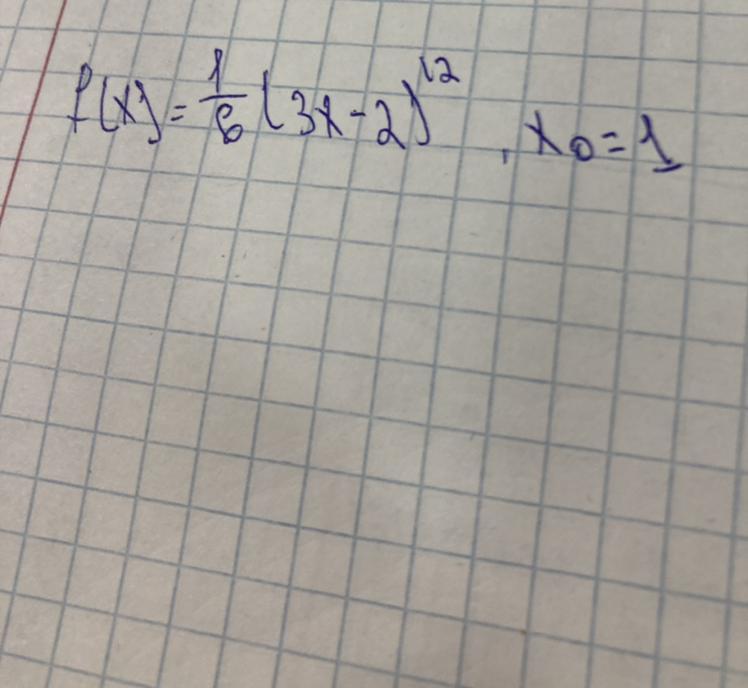 f(x) = 1/6 (3x-2)^12 , x0 = 1